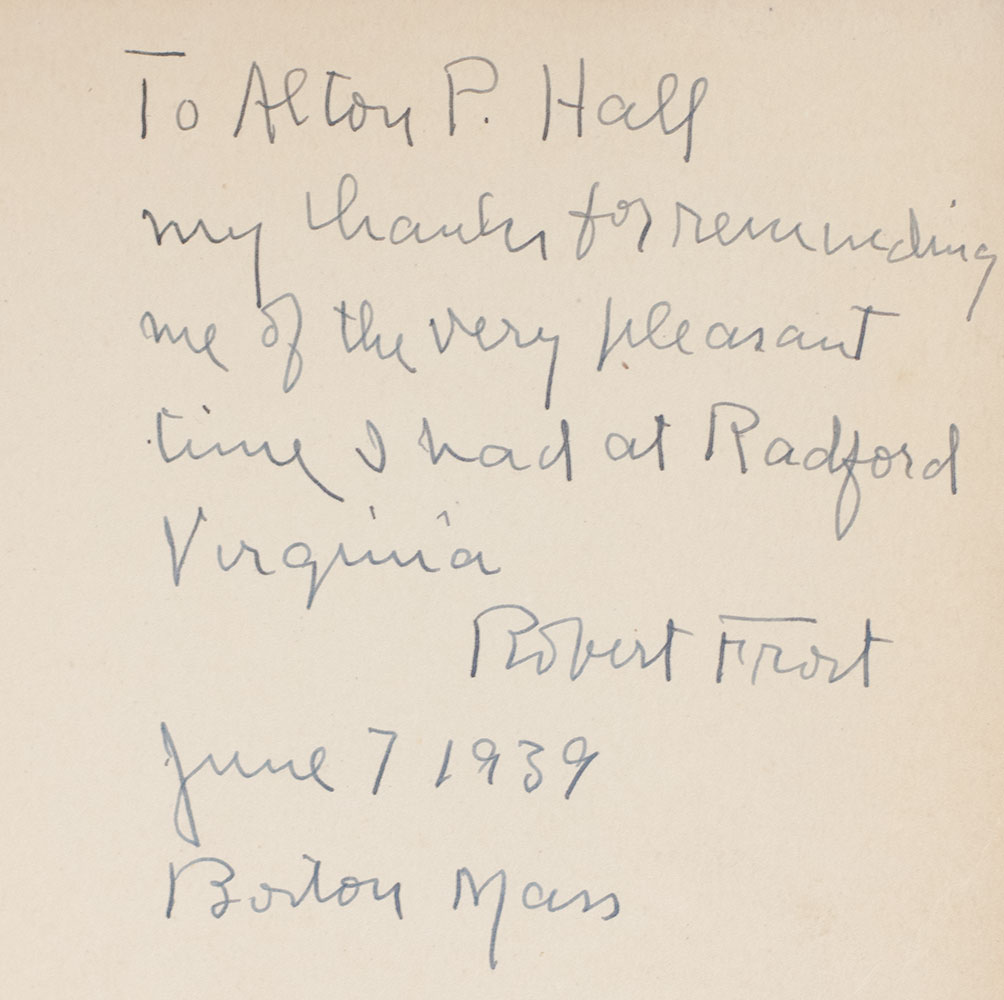 To Alton P. Hall
my thanks for reminding
me of the very pleasant
time I had at Radford
Virginia
Robert Frost
June 7 1939
Boston Mass